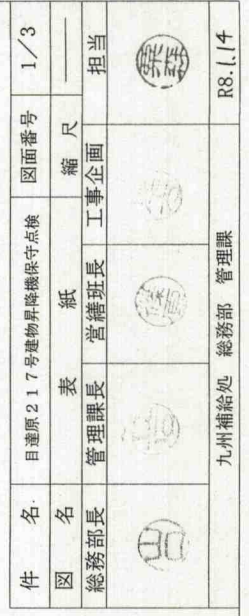 件 名 目達原217号建物昇降機保守点検 図面番号 1/3
図 名 表 紙 縮 尺 ――
総務部長 管理課長 営繕班長 工事企画 担当
九州補給処 総務部 管理課 R8.1.14